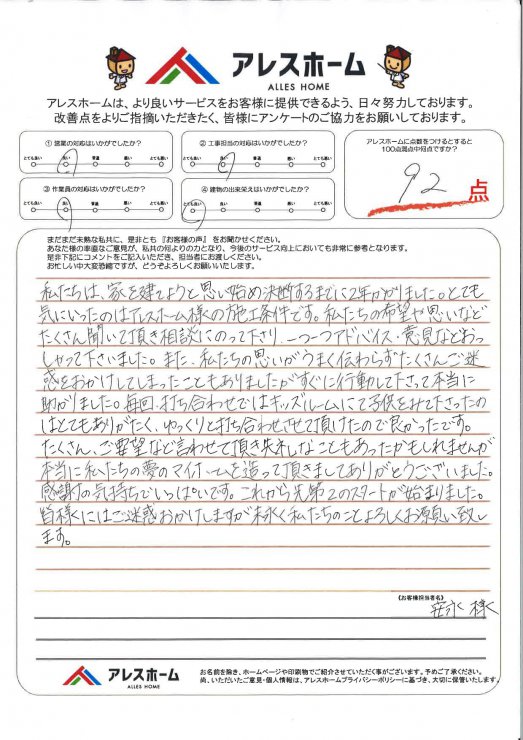 アレスホーム
ALLES HOME
アレスホームは、より良いサービスをお客様に提供できるよう、日々努力しております。
改善点をよりご指摘いただきたく、皆様にアンケートのご協力をお願いしております。
① 営業の対応はいかがでしたか?
とても良い 良い 普通 悪い とても悪い
② 工事担当の対応はいかがでしたか?
とても良い 良い 普通 悪い とても悪い
③ 作業員の対応はいかがでしたか?
とても良い 良い 普通 悪い とても悪い
④ 建物の出来栄えはいかがでしたか?
とても良い 良い 普通 悪い とても悪い
アレスホームに点数をつけるとすると
100点満点中何点ですか?
92点
まだまだ未熟な私共に、是非とも『お客様の声』をお聞かせください。
あなた様の率直なご意見が、私共の何よりの力となり、今後のサービス向上においても非常に参考となります。
是非下記にコメントをご記入いただき、担当者にお渡しください。
お忙しい中大変恐縮ですが、どうぞよろしくお願いいたします。
私たちは、家を建てようと思い始め決断するまでに2年かかりました。とても
気にいったのはアレスホーム様の施工条件です。私たちの希望や思いなど
たくさん聞いて頂き相談にのって下さり、一つ一つアドバイス・意見などおっ
しゃって下さいました。また、私たちの思いがうまく伝わらずたくさんご迷
惑をおかけしてしまったこともありましたがすぐに行動して下さって本当に
助かりました。毎回、打ち合わせではキッズルームにて子供をみて下さったの
はとてもありがたく、ゆっくりと打ち合わせさせて頂けたので良かったです。
たくさん、ご要望など言わせて頂き失礼なこともあったかもしれませんが
本当に私たちの夢のマイホームを造って頂きましてありがとうございました。
感謝の気持ちでいっぱいです。これから第2のスタートが始まりました。
皆様にはご迷惑おかけしますが末永く私たちのことよろしくお願い致し
ます。
《お客様担当者名》
様
アレスホーム
ALLES HOME
お名前を除き、ホームページや印刷物でご紹介させていただく事がございます。予めご了承ください。
尚、いただいたご意見・個人情報は、アレスホームプライバシーポリシーに基づき、大切に保管いたします。